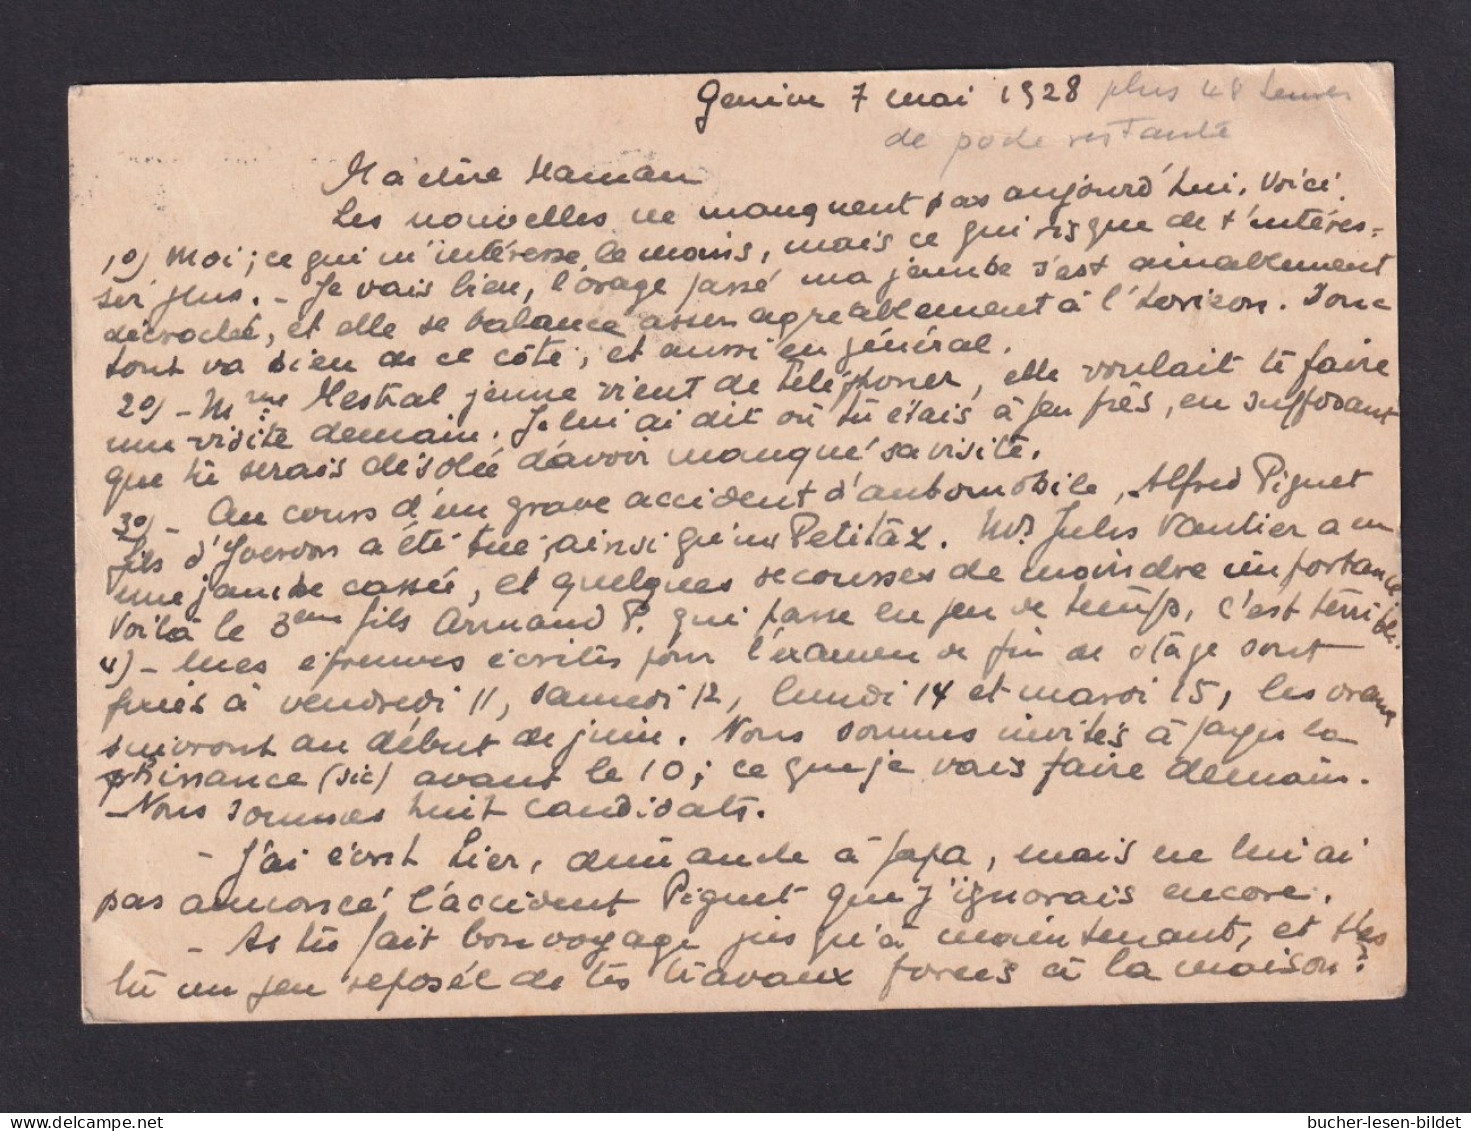 Genève 7 mai 1928 plus 48 heures
de poste restante
Ma chère Maman
Les nouvelles ne manquent pas aujourd'hui. Voici.
1º) Moi; ce qui m'intéresse le moins, mais ce qui risque de t'intéres=
ser plus. - Je vais bien, l'orage passé ma jambe s'est aimablement
décrochée, et elle se balance assez agréablement à l'horizon. Donc
tout va bien de ce côté, et aussi en général.
2º) - Mme Mestral jeune vient de téléphoner, elle voulait te faire
une visite demain. Je lui ai dit où tu étais à peu près, en
que tu serais désolée d'avoir manqué sa visite.
3º) - Au cours d'un grave accident d'automobile, Alfred Piguet
fils d'Yverdon a été tué, ainsi qu'un Petitaz. Mr. Jules Vautier a eu
une jambe cassée, et quelques secousses de moindre importance
Voilà le 3ème fils Armand P. qui passe en peu de temps, c'est terrible.
4) - Mes épreuves écrites pour l'examen de fin de stage sont
fixées à vendredi 11, samedi 12, lundi 14 et mardi 15, les oraux
suivront au début de juin. Nous sommes invités à payer la
finance (sic) avant le 10; ce que je vais faire demain.
- Nous sommes huit candidats.
- J'ai écrit hier, dimanche à papa, mais ne lui ai
pas annoncé l'accident Piguet que j'ignorais encore.
- As tu fait bon voyage jusqu'à maintenant, et t'es
tu un peu reposée de tes travaux forcés à la maison?
bucher-lesen-bildet